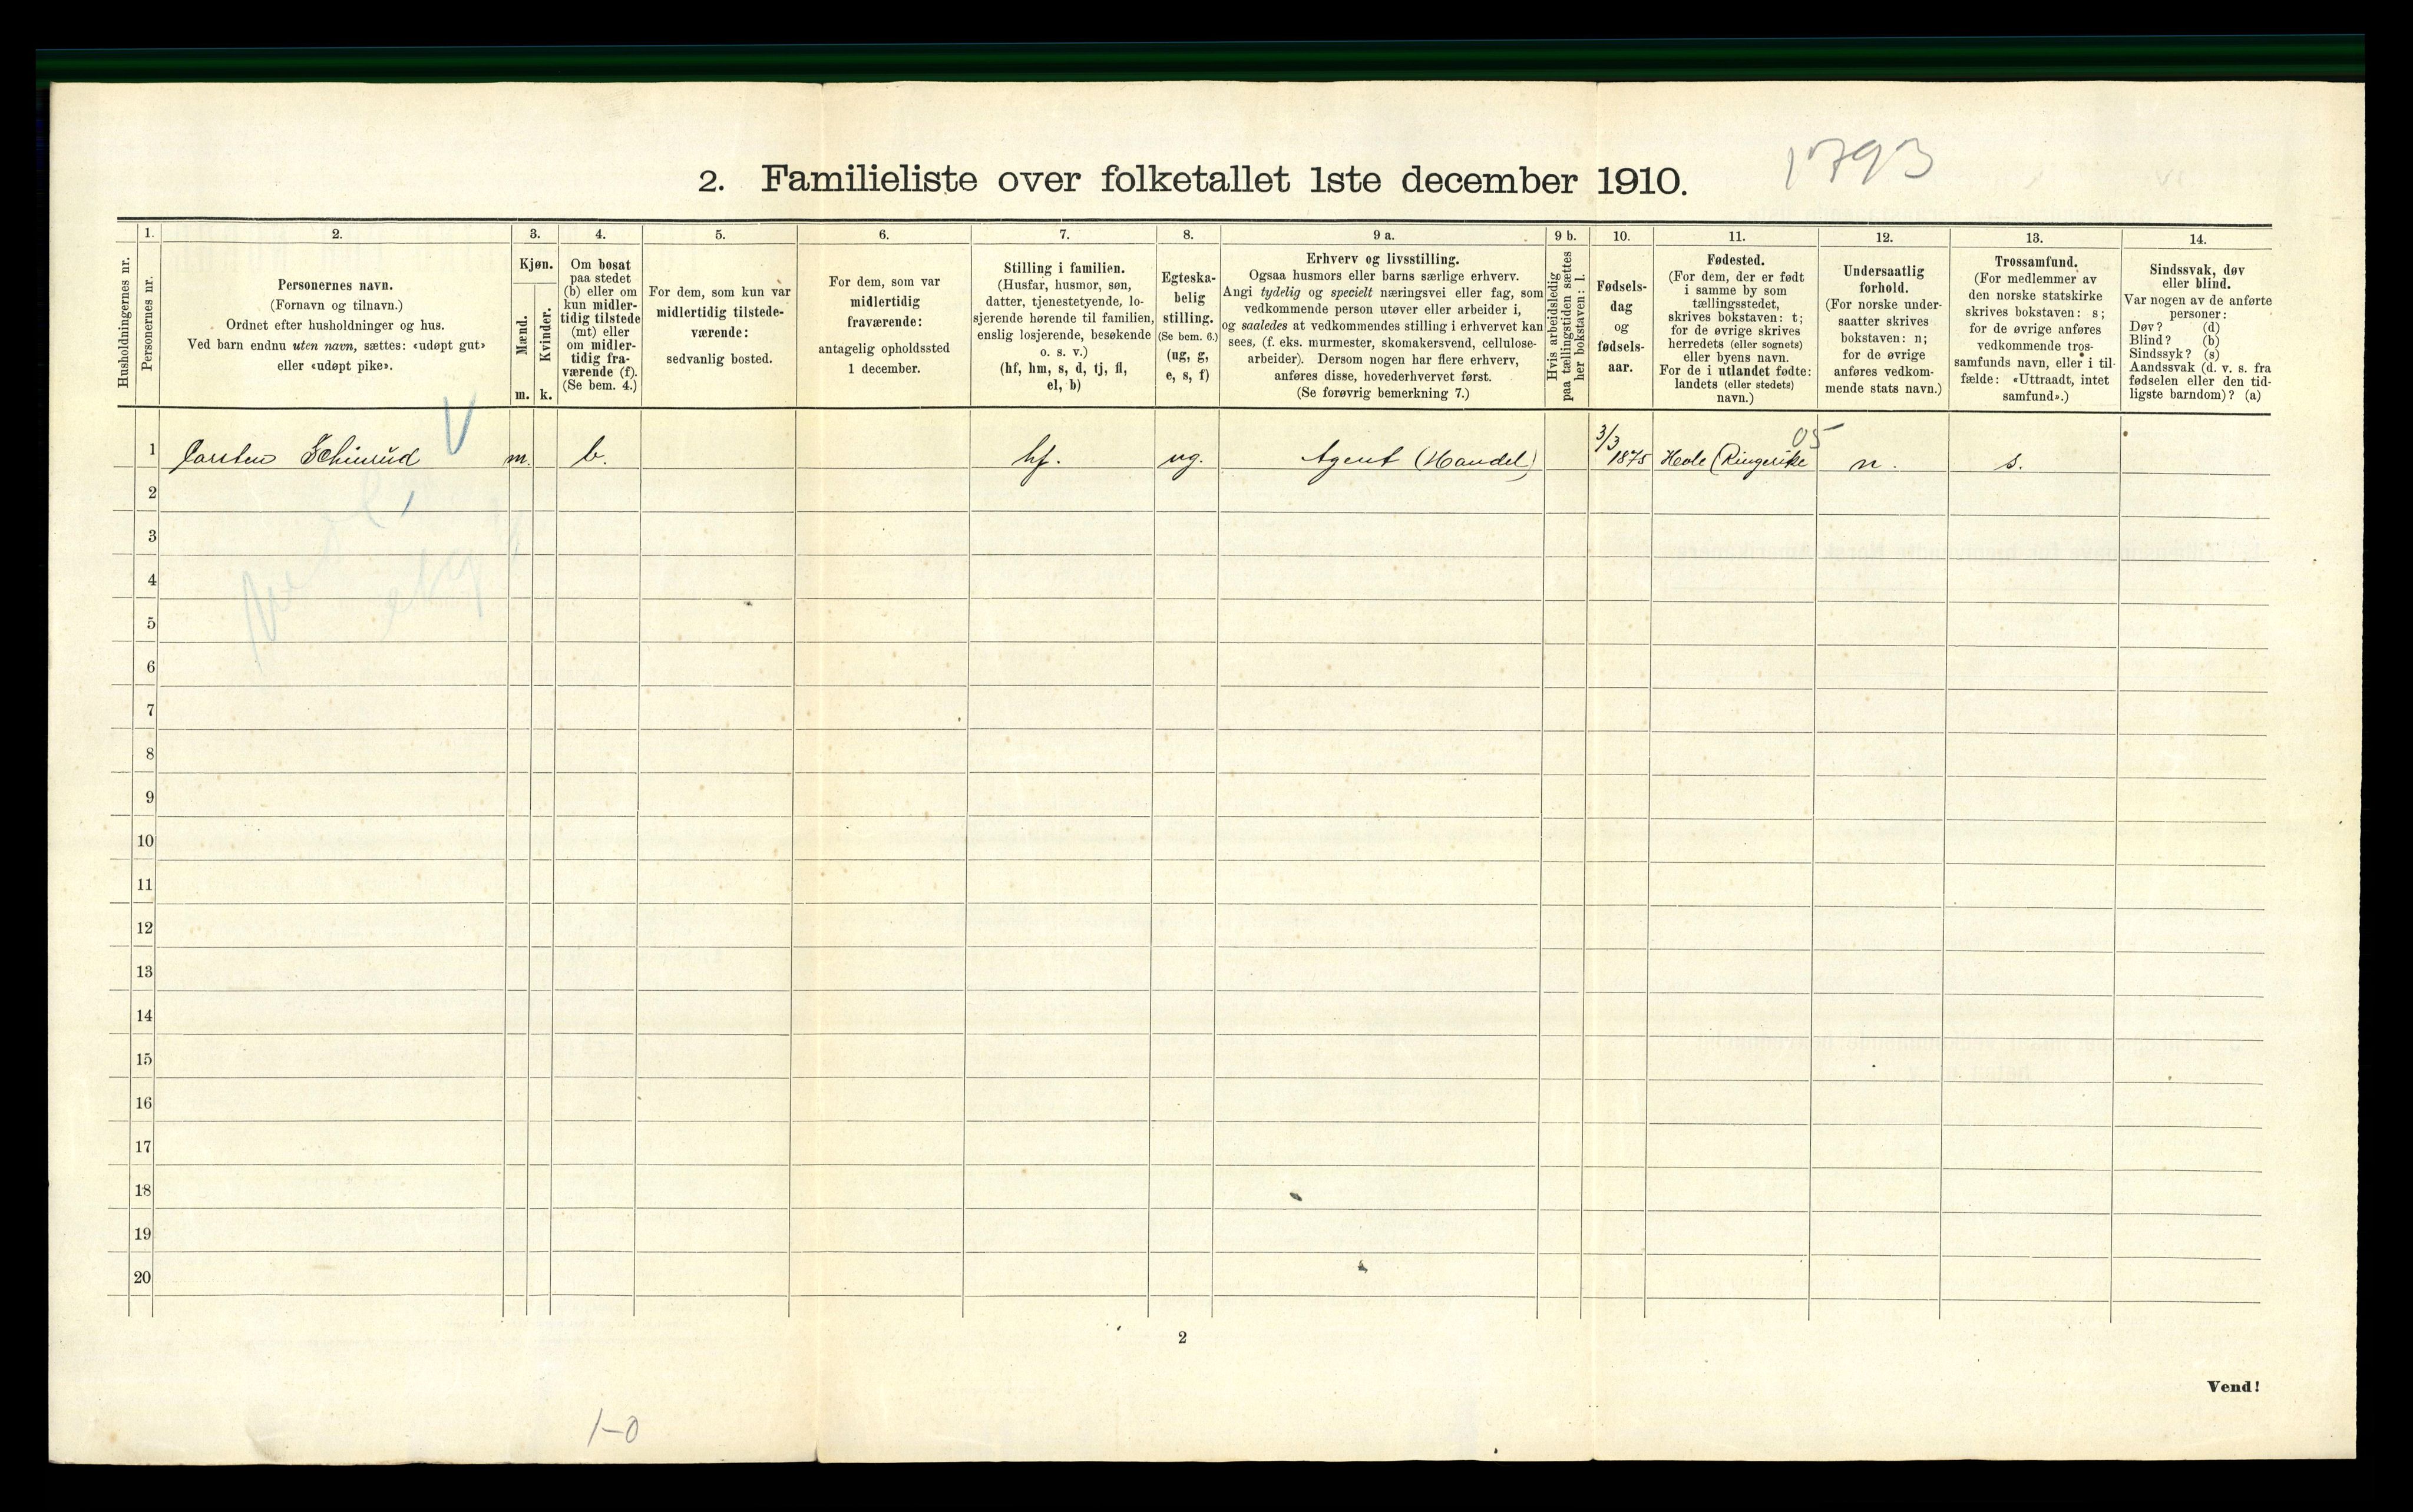 1793
2. Familieliste over folketallet 1ste december 1910.
Husholdningernes nr.
1.
Personernes nr.
2.
Personernes navn.
(Fornavn og tilnavn.)
Ordnet efter husholdninger og hus.
Ved barn endnu uten navn, sættes: «udøpt gut»
eller «udøpt pike».
3.
Kjøn.
Mænd.
Kvinder.
m. k.
4.
Om bosat
paa stedet
(b) eller om
kun midler-
tidig tilstede
(mt) eller
om midler-
tidig fra-
værende (f).
(Se bem. 4.)
5.
For dem, som kun var
midlertidig tilstede-
værende:
sedvanlig bosted.
6.
For dem, som var
midlertidig
fraværende:
antagelig opholdssted
1 december.
7.
Stilling i familien.
(Husfar, husmor, søn,
datter, tjenestetyende, lo-
sjerende hørende til familien,
enslig losjerende, besøkende
o. s. v.)
(hf, hm, s, d, tj, fl,
el, b)
8.
Egteska-
belig
stilling.
(Se bem. 6.)
(ug, g,
e, s, f)
9 a.
Erhverv og livsstilling.
Ogsaa husmors eller barns særlige erhverv.
Angi tydelig og specielt næringsvei eller fag, som
vedkommende person utøver eller arbeider i,
og saaledes at vedkommendes stilling i erhvervet kan
sees, (f. eks. murmester, skomakersvend, cellulose-
arbeider). Dersom nogen har flere erhverv,
anføres disse, hovederhvervet først.
(Se forøvrig bemerkning 7.)
9 b.
Hvis arbeidsledig
paa tællingstiden sættes
her bokstaven: l.
10.
Fødsels-
dag
og
fødsels-
aar.
11.
Fødested.
(For dem, der er født
i samme by som
tællingsstedet,
skrives bokstaven: t;
for de øvrige skrives
herredets (eller sognets)
eller byens navn.
For de i utlandet fødte:
landets (eller stedets)
navn.)
12.
Undersaatlig
forhold.
(For norske under-
saatter skrives
bokstaven: n;
for de øvrige
anføres vedkom-
mende stats navn.)
13.
Trossamfund.
(For medlemmer av
den norske statskirke
skrives bokstaven: s;
for de øvrige anføres
vedkommende tros-
samfunds navn, eller i til-
fælde: «Uttraadt, intet
samfund».)
14.
Sindssvak, døv
eller blind.
Var nogen av de anførte
personer:
Døv? (d)
Blind? (b)
Sindssyk? (s)
Aandssvak (d. v. s. fra
fødselen eller den tid-
ligste barndom)? (a)
1 Carsten m. b. hf. ug. Agent (Handel) 3/3 1875 Hole (Ringerike 05 n. s.
2
3
4
5
6
7
8
9
10
11
12
13
14
15
16
17
18
19
20
2
Vend!
1-0